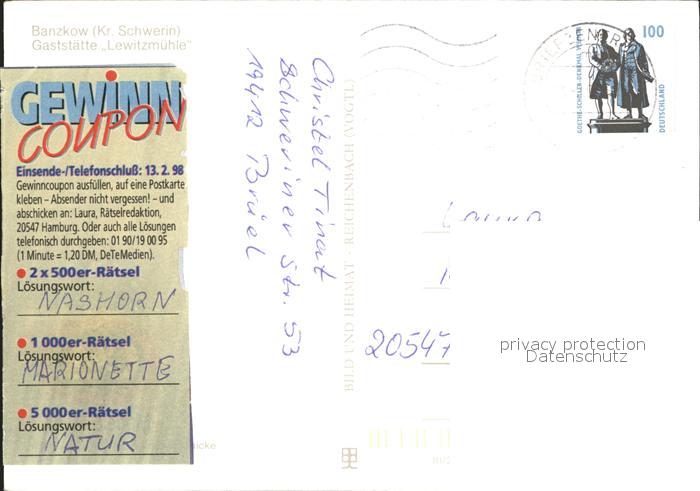 Banzkow (Kr. Schwerin)
Gaststätte „Lewitzmühle"
GEWINN
COUPON
Einsende-/Telefonschluß: 13. 2. 98
Gewinncoupon ausfüllen, auf eine Postkarte
kleben – Absender nicht vergessen! – und
abschicken an: Laura, Rätselredaktion,
20547 Hamburg. Oder auch alle Lösungen
telefonisch durchgeben: 01 90/19 00 95
(1 Minute = 1,20 DM, DeTeMedien).
2 x 500er-Rätsel
Lösungswort:
NASHORN
1 000er-Rätsel
Lösungswort:
MARIONETTE
5 000er-Rätsel
Lösungswort:
NATUR
Christel Tinat
Schweriner Str. 53
19412 Brüel
BILD UND HEIMAT · REICHENBACH (VOGTL)
100
GOETHE-SCHILLER-DENKMAL WEIMAR
DEUTSCHLAND
20547
privacy protection
Datenschutz